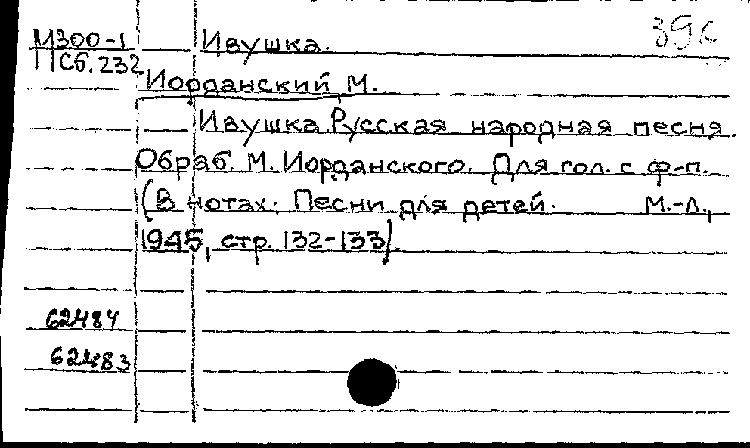 М300-1 Ивушка. 39с
ПСб.232
Иорданский М.
Ивушка. Русская народная песня.
Обраб. М. Иорданского. Для гол. с ф-п.
(В нотах: Песни для детей. М.-Л.,
1945, стр. 132-133).
62484
62483